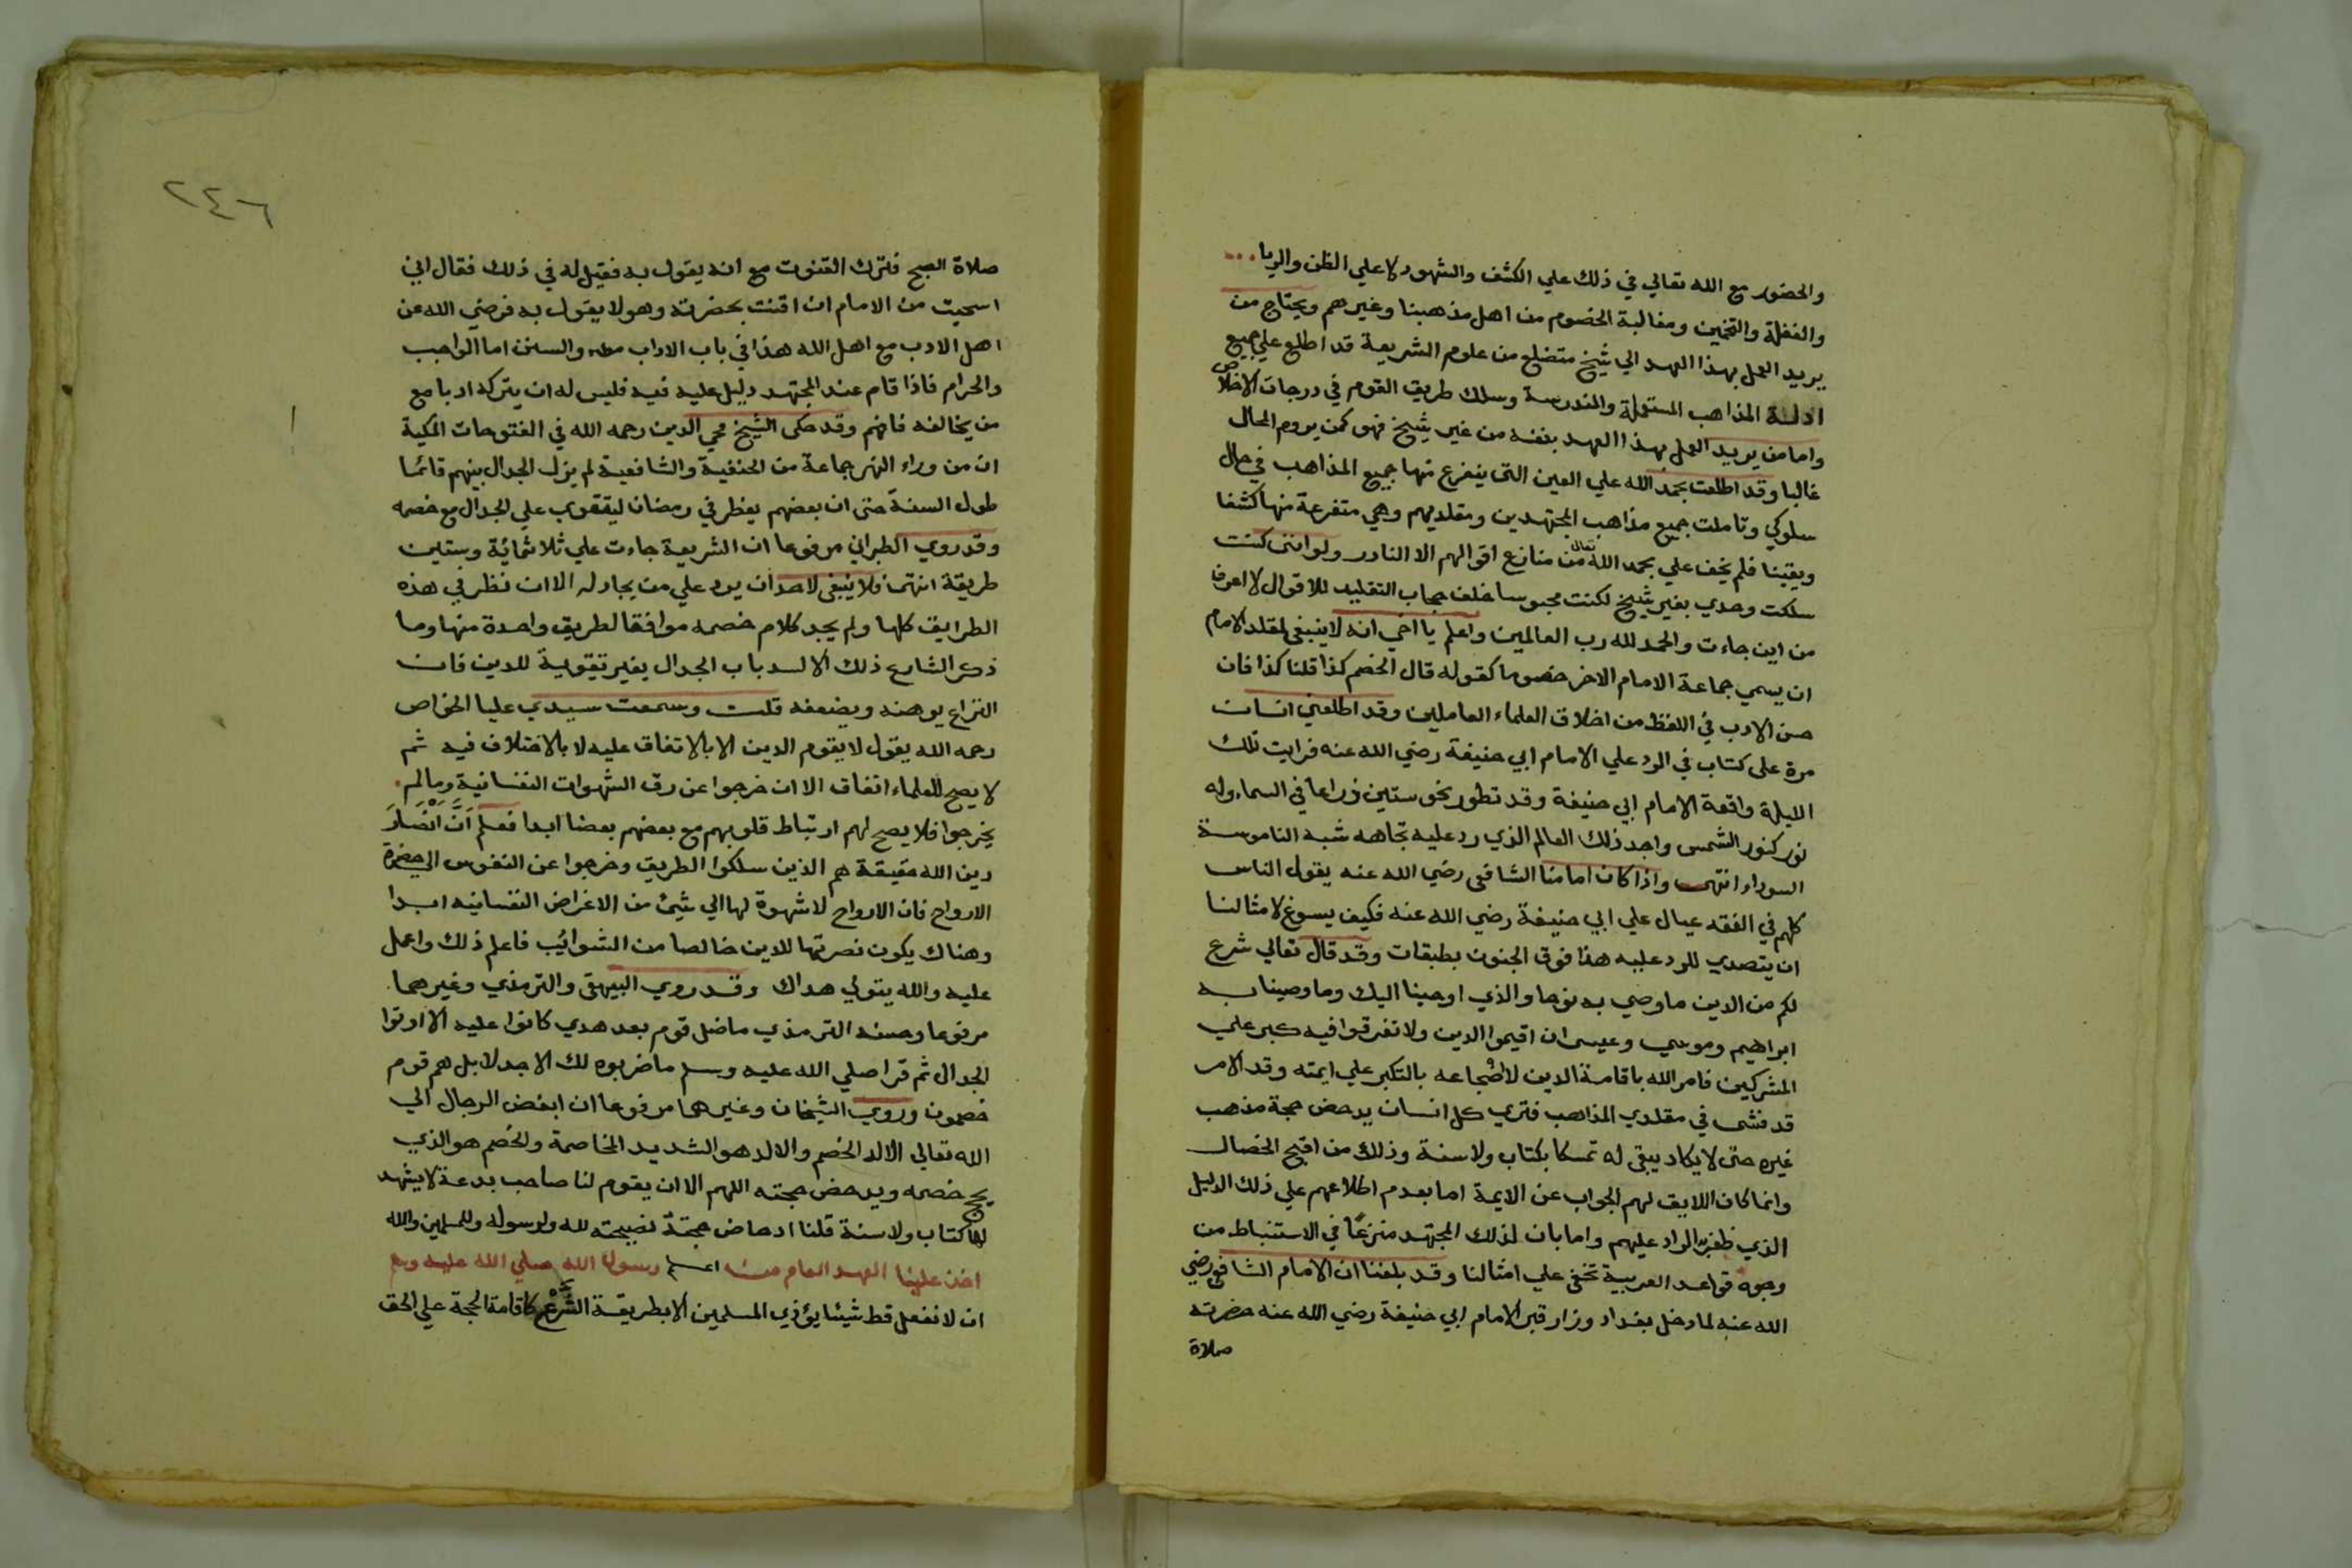 والحضور مع الله تعالي في ذلك علي الكشف والشهود لا علي الظن والريا
والغفلة والتخمين ومغالبة الخصوم من اهل مذهبنا وغيرهم ويحتاج من
يريد العمل بهذا العهد الي شيخ متضلع من علوم الشريعة قد اطلع علي جميع
ادلة المذاهب المستعملة والمندرسة وسلك طريق القوم في درجات الاخلاص
واما من يريد العمل بهذا العهد بنفسه من غير شيخ فهو كمن يروم المحال
غالبا وقد اطلعت بحمد الله علي العين التي يتفرع منها جميع المذاهب في حال
سلوكي وتاملت جميع مذاهب المجتهدين ومقلديهم وهي متفرعة منها كشفا
ويقينا فلم يخف علي بحمد الله تعالى من منازع اقوالهم الا النادر ولو انني كنت
سلكت وحدي بغير شيخ لكنت محبوسا خلف حجاب التقليد للاقوال لا اعرف
من اين جاءت والحمد لله رب العالمين واعلم يا اخي انه لا ينبغي لمقلد الامام
ان يسمي جماعة الامام الاخر خصوما كقوله قال الخصم كذا قلنا كذا فان
حسن الادب في اللفظ من اخلاق العلماء العاملين وقد اطلعني انسان
مرة على كتاب في الرد علي الامام ابي حنيفة رضي الله عنه فرايت تلك
الليلة واقعة الامام ابي حنيفة وقد تطور نحو ستين ذراعا في السماء وله
نور كنور الشمس واجد ذلك العالم الذي رد عليه تجاهه شبه الناموسة
السوداء انتهى واذا كان امامنا الشافعي رضي الله عنه يقول الناس
كلهم في الفقه عيال علي ابي حنيفة رضي الله عنه فكيف يسوغ لامثالنا
ان يتصدي للرد عليه هذا فوق الجنون بطبقات وقد قال تعالي شرع
لكم من الدين ما وصي به نوحا والذي اوحينا اليك وما وصينا به
ابراهيم وموسي وعيسى ان اقيموا الدين ولا تتفرقوا فيه كبر علي
المشركين فامر الله باقامة الدين لا اضجاعه بالتكبر علي ايمته وقد الامر
قد فشى في مقلدي المذاهب فتري كل انسان يدحض حجة مذهب
غيره حتى لا يكاد يبقى له تمسكا بكتاب ولا سنة وذلك من اقبح الخصال
وانما كان اللايق لهم الجواب عن الايمة اما بعدم اطلاعهم علي ذلك الدليل
الذي ظفر به الراد عليهم واما بان لذلك المجتهد منزعًا في الاستنباط من
وجوه قواعد العربية تخفي علي امثالنا وقد بلغنا ان الامام الشافعي رضي
الله عنه لما دخل بغداد وزار قبر الامام ابي حنيفة رضي الله عنه حضرته
صلاة
٢٤٦
صلاة الصبح فترك القنوت مع انه يقول به فقيل له في ذلك فقال اني
استحيت من الامام ان اقنت بحضرته وهو لا يقول به فرضي الله عن
اهل الادب مع اهل الله هذا في باب الاداب والسنن اما الواجب
والحرام فاذا قام عند المجتهد دليل عليه فيه فليس له ان يتركه ادبا مع
من يخالفه فافهم وقد حكى الشيخ محي الدين رحمه الله في الفتوحات المكية
ان من وراء النهر جماعة من الحنفية والشافعية لم يزل الجدال بينهم قائما
طول السنة حتى ان بعضهم يفطر في رمضان ليتقوي علي الجدال مع خصمه
وقد روي الطبراني مرفوعا ان الشريعة جاءت علي ثلاثمائة وستين
طريقة انتهت فلا ينبغي لاحد ان يرد علي من يجادله الا ان نظر في هذه
الطرايق كلها ولم يجد كلام خصمه موافقا لطريق واحدة منها وما
ذكر الشارع ذلك الا لسد باب الجدال بغير تقوية للدين فان
النزاع يوهنه ويضعفه قلت وسمعت سيدي عليا الخواص
رحمه الله يقول لا يقوم الدين الا بالاتفاق عليه لا بالاختلاف فيه ثم
لا يصح للعلماء اتفاق الا ان خرجوا عن رق الشهوات النفسانية وما لم
يخرجوا فلا يصح لهم ارتباط قلوبهم مع بعضهم بعضا ابدا فعلم اَنَّ اَنْصَارَ
دين الله حقيقة هم الذين سلكوا الطريق وخرجوا عن النفوس الي حضرة
الارواح فان الارواح لا شهوة لها الي شيئ من الاغراض النفسانيه ابدا
وهناك يكون نصرتها للدين خالصا من الشوائب فاعلم ذلك واعمل
عليه والله يتولي هداك وقد روي البيهقي والترمذي وغيرهما
مرفوعا وحسنه الترمذي ما ضل قوم بعد هدي كانوا عليه الا اوتوا
الجدال ثم قرا صلي الله عليه وسلم ما ضربوه لك الا جدلا بل هم قوم
خصمون وروي الشيخان وغيرهما مرفوعا ان ابغض الرجال الي
الله تعالي الالد الخصم والالد هو الشديد المخاصمة والخصم هو الذي
يحج خصمه ويدحض حجته اللهم الا ان يقوم لنا صاحب بدعة لا يشهد
لها كتاب ولا سنة قلنا ادحاض حجته نصيحة لله ولرسوله وللمسلمين والله
اعلم
اخذ علينا العهد العام من رسول الله صلي الله عليه وسلم
ان لا نفعل قط شيئا يؤذي المسلمين الا بطريقة الشرع كاقامة الحجة علي الحق